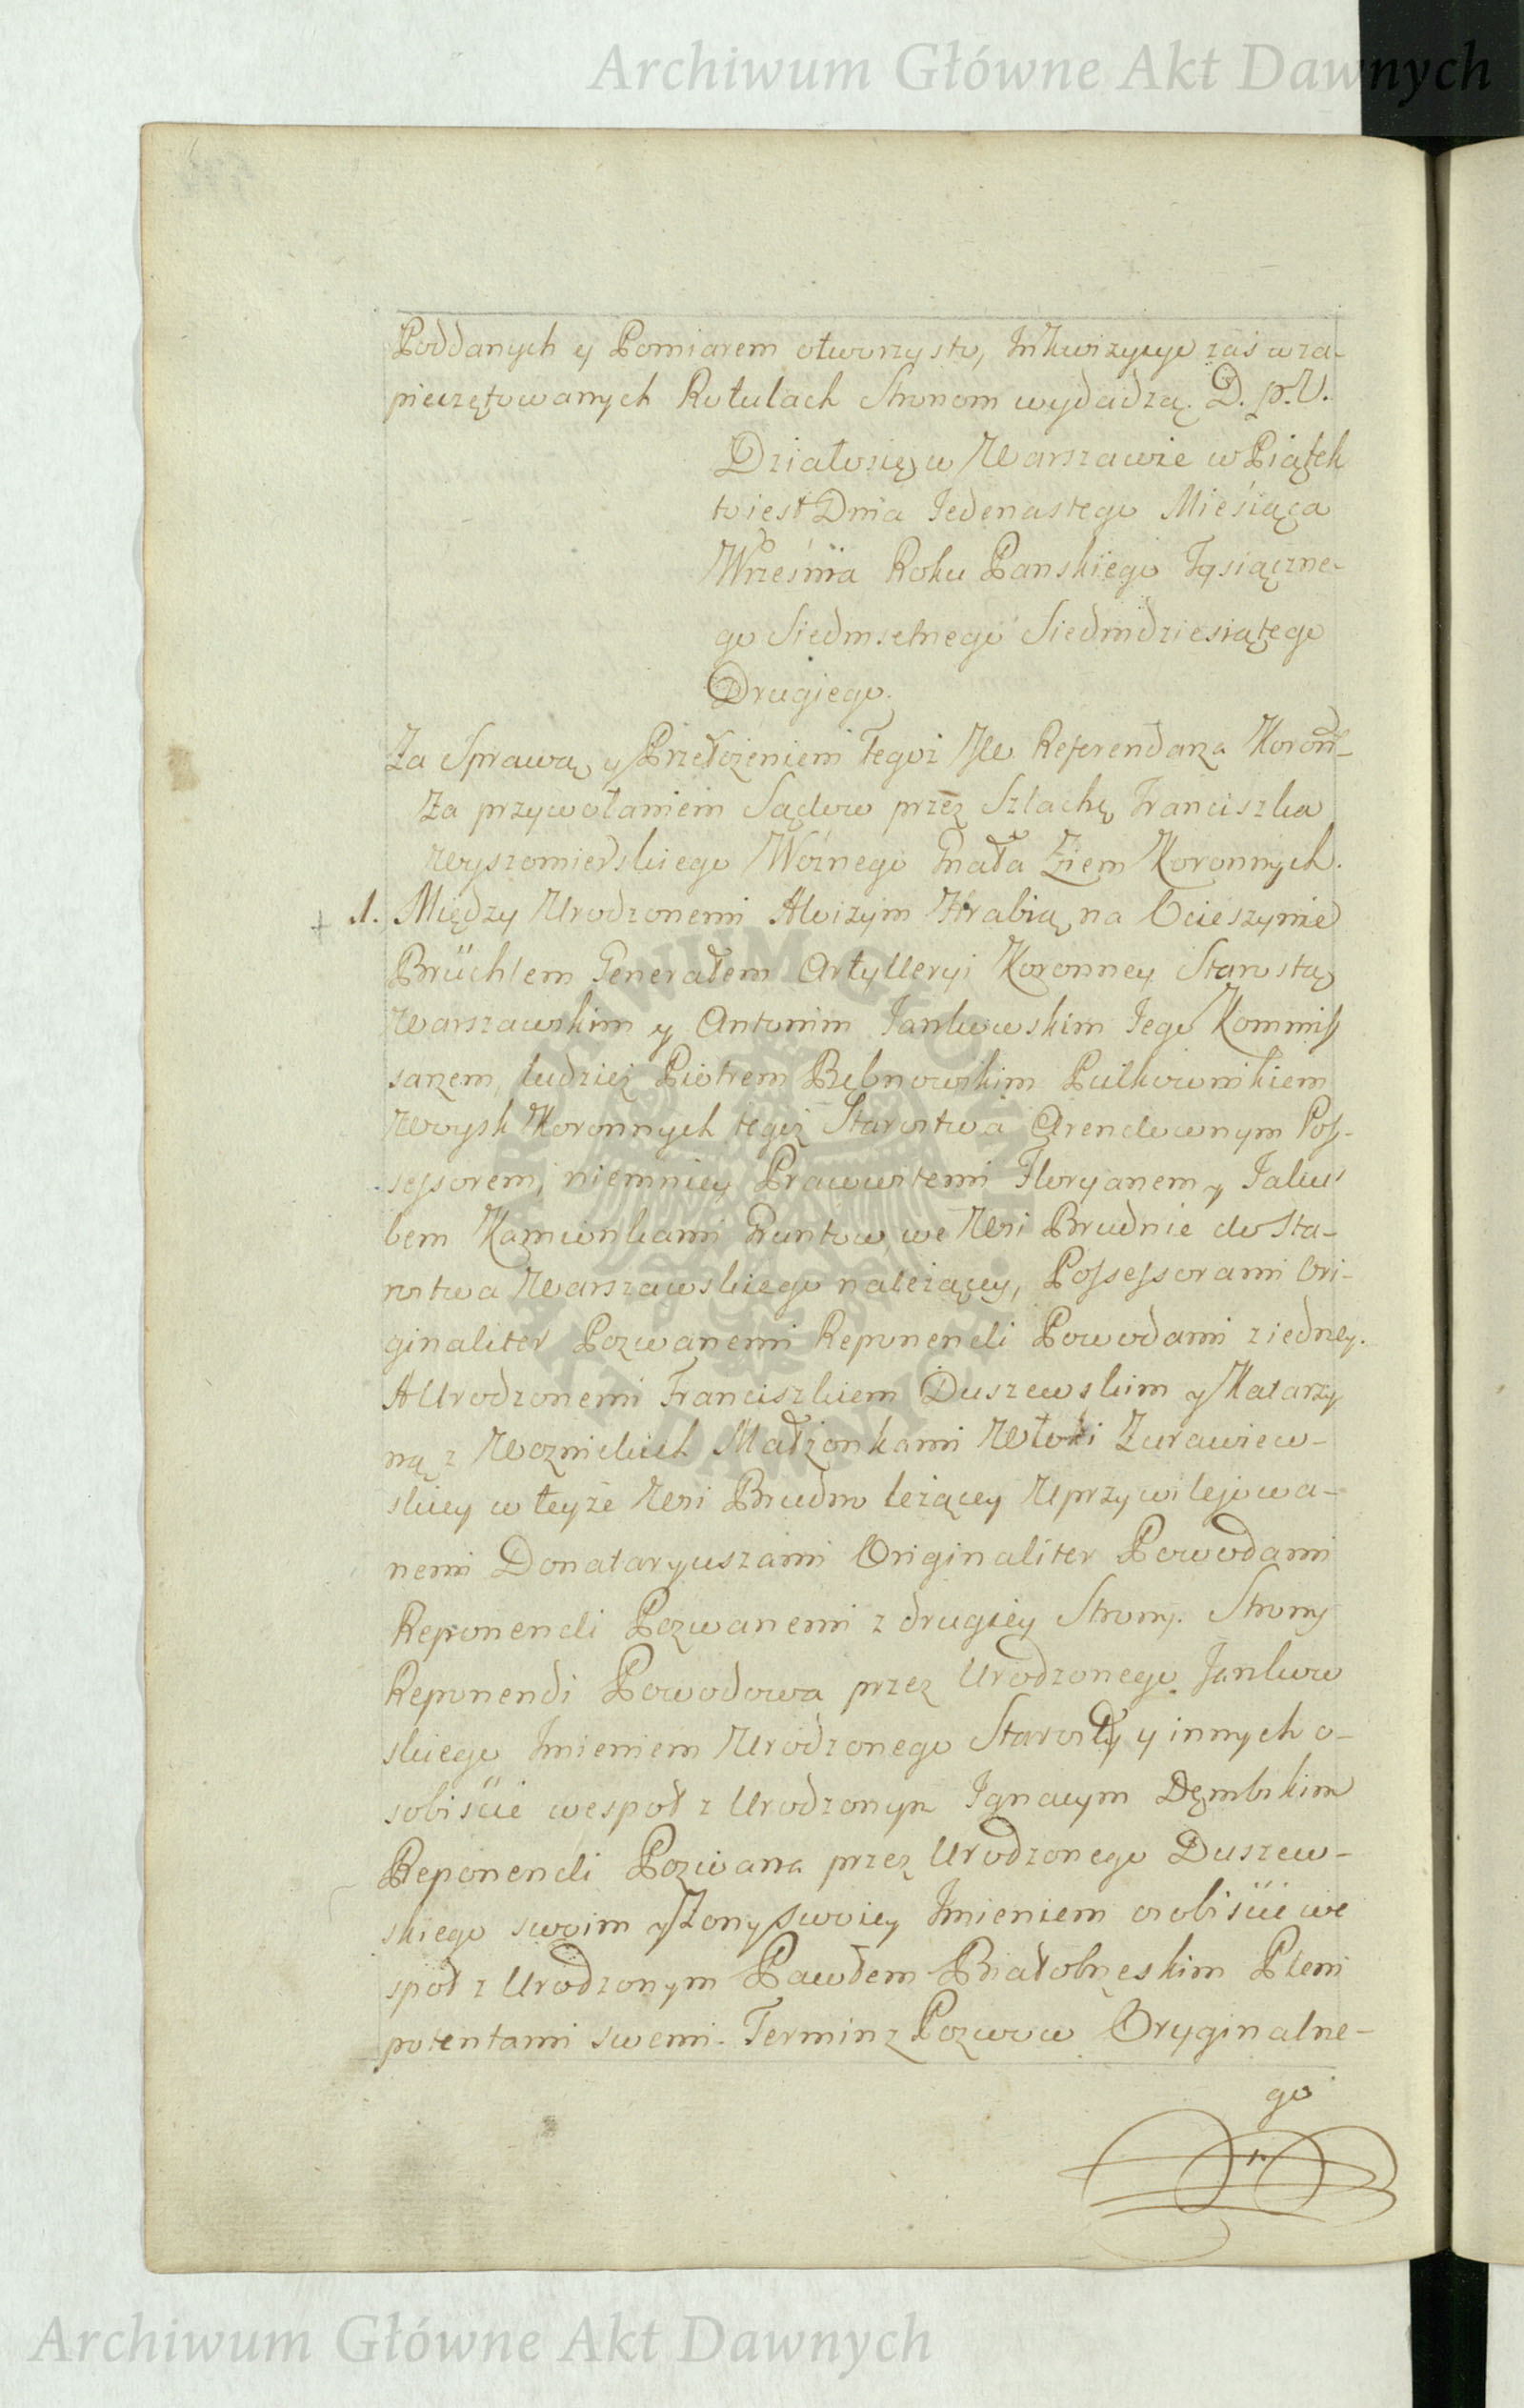 Archiwum Główne Akt Dawnych
Poddanych y Pomiarem otworzysto, Inkwizycye zaś w za-
pieczętowanych Rotulach Stronom wydadzą. D. p. V.
Działo się w Warszawie w Piątek
to iest Dnia Iedenastego Miesiąca
Września Roku Panskiego Tysiączne-
go Siedmsetnego Siedmdziesiątego
Drugiego.
Za Sprawą y Przełożeniem Tegoż JW Referendarza Koron-
Za przywołaniem Sądow przez Szlachę Franciszka
Wyszomierskiego Woźnego Gnała Ziem Koronnych.
1. Między Urodzonemi Aloizym Hrabią na Ocieszynie
Brüchlem Generałem Artylleryi Koronney Starostą
Warszawskim y Antonim Jankowskim Jego Kommis
sarzem, tudzież Piotrem Bębnowskim Pułkownikiem
Woysk Koronnych tegoż Starostwa Arendownym Pos-
sessorem, niemniey Prawowitemi Floryanem y Jaku
bem Kazmionkami Gruntow we Wsi Brudnie do Sta-
rostwa Warszawskiego należącey, Possessorami Ori-
ginaliter Pozwanemi Reponendi Powodami z iedney.
A Urodzonemi Franciszkiem Duszewskim y Katarzy
ną z Woznickich Małżonkami Włoki Zurawiew-
skiey w teyże Wsi Brudno leżącey Uprzywilejowa-
nemi Donataryuszami Originaliter Powodami
Reponendi Pozwanemi z drugiey Strony. Strony
Reponendi Powodowa przez Urodzonego Jankow
skiego Imieniem Urodzonego Starosty y innych o-
sobiście wespoł z Urodzonym Ignacym Dębskim
Reponendi Pozwana przez Urodzonego Duszew-
skiego swoim y Zony swoiey Imieniem osobiście we
społ z Urodzonym Pawłem Białobrzeskim Pleni
potentami swemi. Termin z Pozwow Oryginalne-
go
Archiwum Główne Akt Dawnych